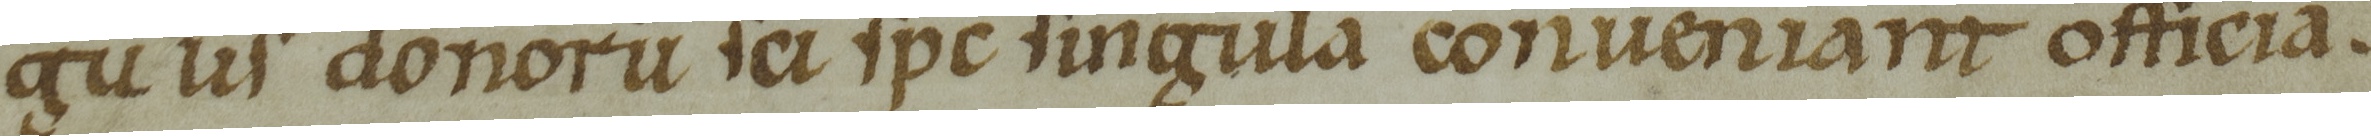 gu us donoru sci spc singula conueniant officia.